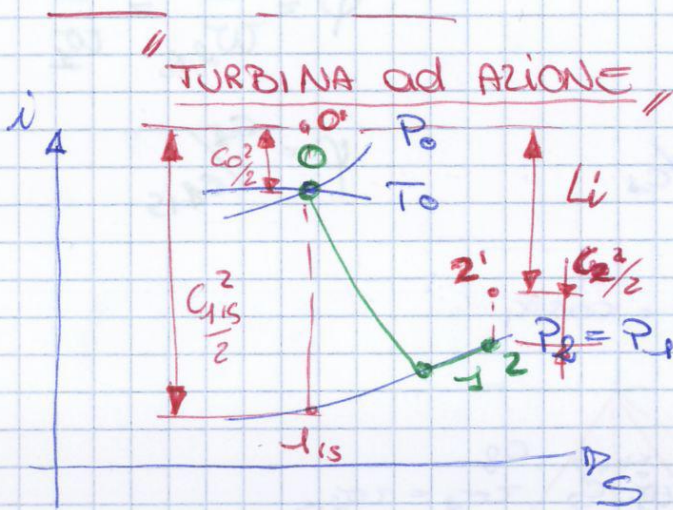 " TURBINA ad AZIONE "
i
0'
P₀
C₀²/2
0
T₀
Li
C₁ᵢₛ²/2
2'
C₂²/2
P₂ = P₁
1
2
1ᵢₛ
S